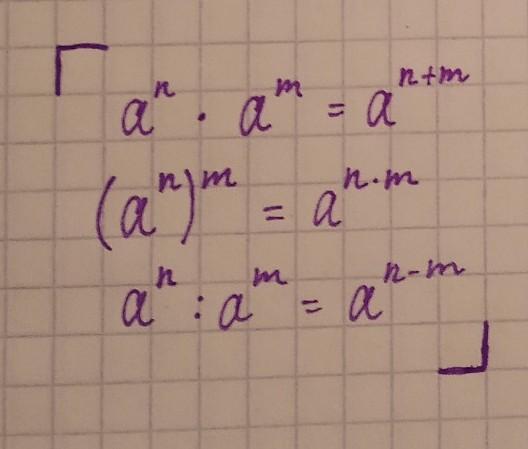 aⁿ · aᵐ = aⁿ⁺ᵐ
(aⁿ)ᵐ = aⁿ·ᵐ
aⁿ : aᵐ = aⁿ⁻ᵐ